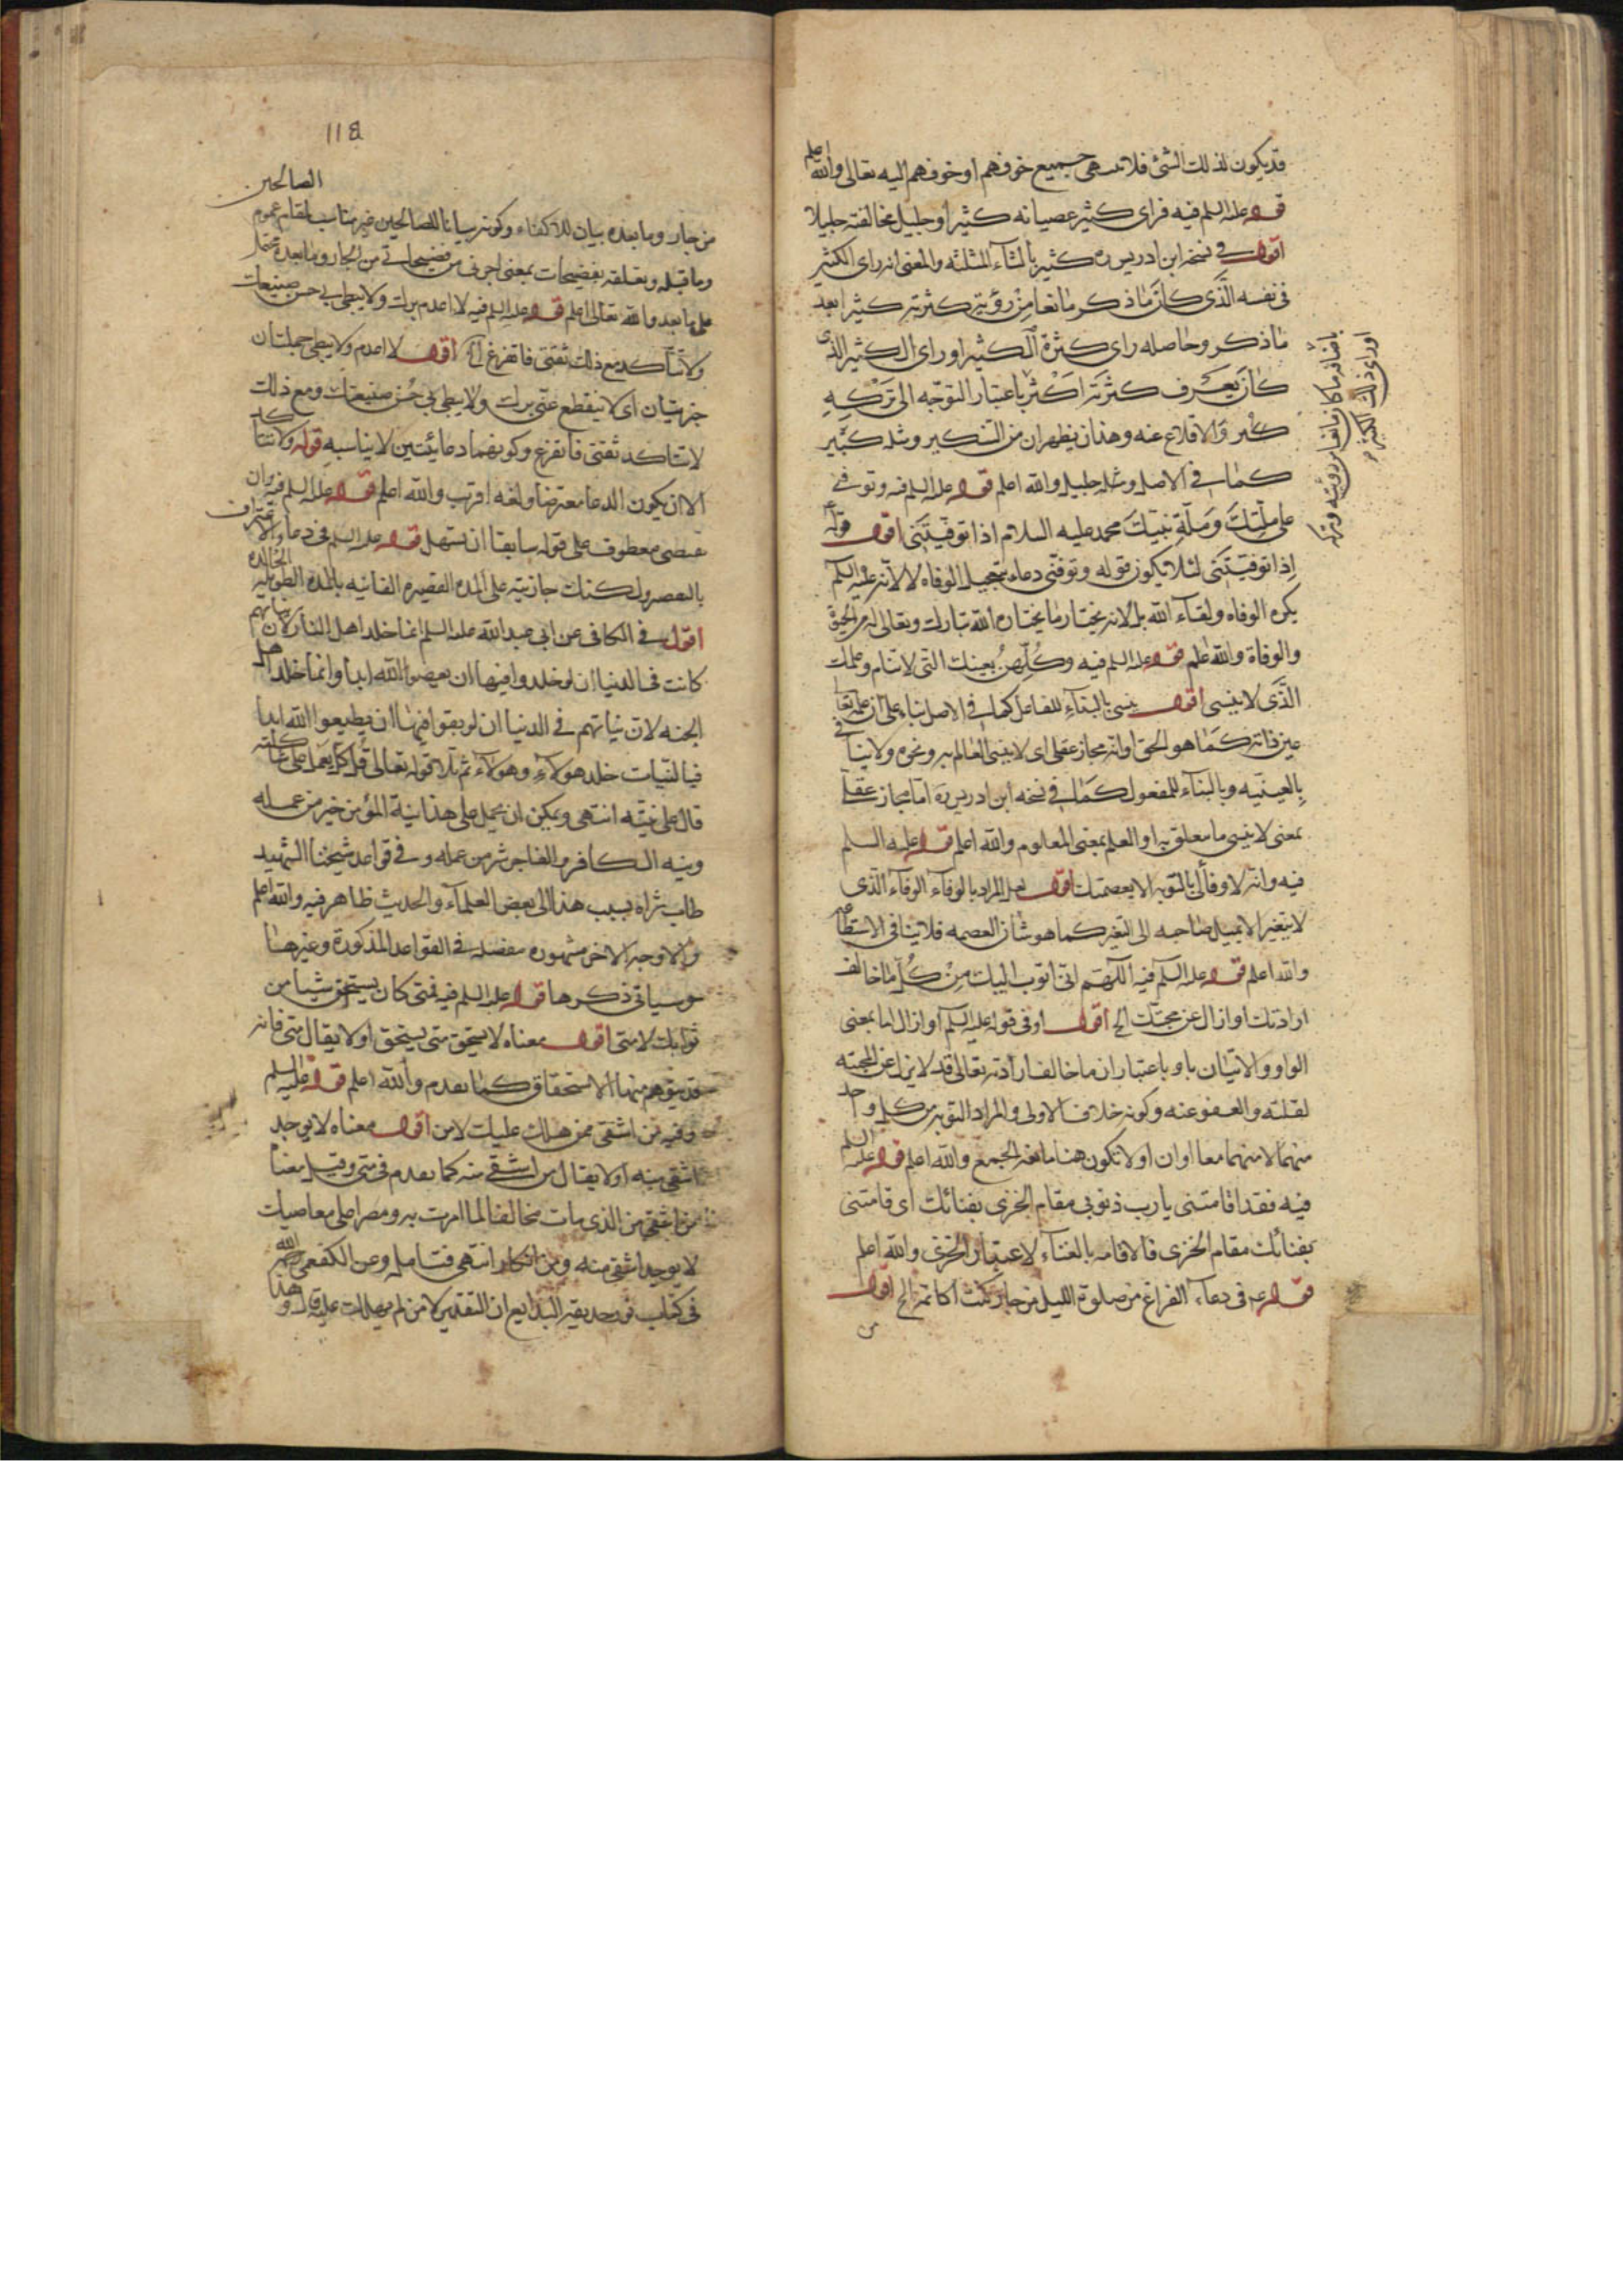 قد يكون لذلك الشئ فلا تنتهي جميع خوفهم او خوفهم اليه تعالى والله اعلم
قوله عليه السلم فيه فراى كثير عصيانه كثيرا وجليل مخالفته جليلا
اقول في نسخة ابن ادريس ره كثير بالثاء المثلثة والمعنى انه راى الكثير
في نفسه الذي كان ما ذكر مانعا من رؤية كثرته كثيرا بعد
ما ذكر وحاصله راى كثرة الكثير او راى الكثير الذي
كان يعرف كثرته اكثر باعتبار التوجه الى تركه
والاقلاع عنه وهذان يظهران من التنكير ومثله كبير
كما في الاصل ومثله جليل والله اعلم قوله عليه السلم فيه وتوفني
على ملتك وملة نبيك محمد عليه السلام اذا توفيتني اقول قوله
اذا توفيتني لئلا يكون قوله وتوفني دعاء بتعجيل الوفاه لا لانه عليه السلم
يكره الوفاه ولقاء الله بل لانه يختار ما يختاره الله تبارك وتعالى له من الحيوة
والوفاة والله اعلم قوله عليه السلم فيه وكلهن بعينك التي لا تنام وعلمك
الذي لا ينسى اقول ينسى بالبناء للفاعل كما في الاصل بناء على ان علمه تعالى
عين ذاته كما هو الحق او انه مجاز عقلي اى لا ينسى العالم به ونحوه ولا ينافي
بالعينيه وبالبناء للمفعول كما في نسخه ابن ادريس ره اما مجاز عقلي
بمعنى لا ينسى ما معلق به او العلم بمعنى المعلوم والله اعلم قوله عليه السلم
فيه وانه لا وفاء لي بالتوبه الا بعصمتك اقول لعل المراد بالوفاء الوفاء الذي
لا يتغير ولا يميل صاحبه الى التغير كما هو شان العصمه فلا ينافي الاستطاعة
والله اعلم قوله عليه السلم فيه اللهم اني اتوب اليك من كل ما خالف
ارادتك او ازال عن محبتك الخ اقول او في قوله عليه السلم او ازال اما بمعنى
الواو والاتيان باو باعتبار ان ما خالف ارادته تعالى قد لا يزيل عن المحبته
لقلته والعفو عنه وكونه خلاف الاولى والمراد التوبه من كل واحد
منهما لا منهما معا او ان او لا تكون هنا مانعه الجمع والله اعلم قوله عليه السلم
فيه فقد اقامتني يا رب ذنوبي مقام الخزي بفنائك اى اقامتني
بفنائك مقام الخزي فالاقامه بالفناء لاعتبار الخزي والله اعلم
قوله ع في دعاء الفراغ من صلوة الليل من جار كنت اكاتمه الخ اقول
من
باضافه ما كان مانعا من رؤيته وتركه
او راى ذلك الكثير
118
من جار وما بعده بيان للاكفاء وكونه بيانا للصالحين غير مناسب لمقام عموم الصالحين
وما قبله وتعلقه بفضيحات بمعنى اجرني من فضيحاتي من الجار وما بعده تحمل
على ما بعد والله تعالى اعلم قوله عليه السلم فيه لا اعدم برك ولا يبطي بي حسن صنيعك
ولا تتاكد مع ذلك ثقتي فاتفرغ الخ اقول لا اعدم ولا يبطي جملتان
خبريتان اى لا ينقطع عني برك ولا يبطي بي حسن صنيعك ومع ذلك
لا تتاكد ثقتي فاتفرغ وكونهما دعائيتين لا يناسبه قوله ولا تتاكد
الا ان يكون الدعا معترضا ولعله اقرب والله اعلم قوله عليه السلم فيه وان
تقتضى معطوف على قوله سابقا ان تسهل قوله عليه السلم في دعاء الاعتراف
بالتقصير ولكنك جازيته على المدة القصيرة الفانيه بالمدة الطويلة الخالدة
اقول في الكافي عن ابي عبد الله عليه السلم انما خلد اهل النار لان نياتهم
كانت في الدنيا ان لو خلدوا فيها ان يعصوا الله ابدا وانما خلد اهل
الجنه لان نياتهم في الدنيا ان لو بقوا فيها ان يطيعوا الله ابدا
فبالنيات خلد هولاء وهولاء ثم تلا قوله تعالى قل كل يعمل على شاكلته
قال على نيته انتهى ويمكن ان يحمل على هذا نية المؤمن خير من عمله
ونيه الكافر والفاجر شر من عمله وفي قواعد شيخنا الشهيد
طاب ثراه نسب هذا الى بعض العلماء والحديث ظاهر فيه والله اعلم
والاوجه الاخر مشهوره مفصله في القواعد المذكورة وغيرها
وسياتي ذكرها قوله عليه السلم فيه فمتى كان يستحق شيا من
ثوابك لا متى اقول معناه لا يستحق متى يستحق او لا يقال متى فانه
قد يتوهم منها الاستحقاق كما تقدم والله اعلم قوله عليه السلم
وفيه فمن اشقى ممن هلك عليك لا من اقول معناه لا يوجد
اشقى منه او لا يقال من اشقى منه كما تقدم في متى وقيل معناه
من اشقى من الذي مات مخالفا لما امرت به ومصرا على معاصيك
لا يوجد اشقى منه ومن انكار انتهى فتامله وعن الكفعمي رحمه الله
في كتاب نور حديقة البديع ان التقدير لا من لم يهلك عليه قال وهذا